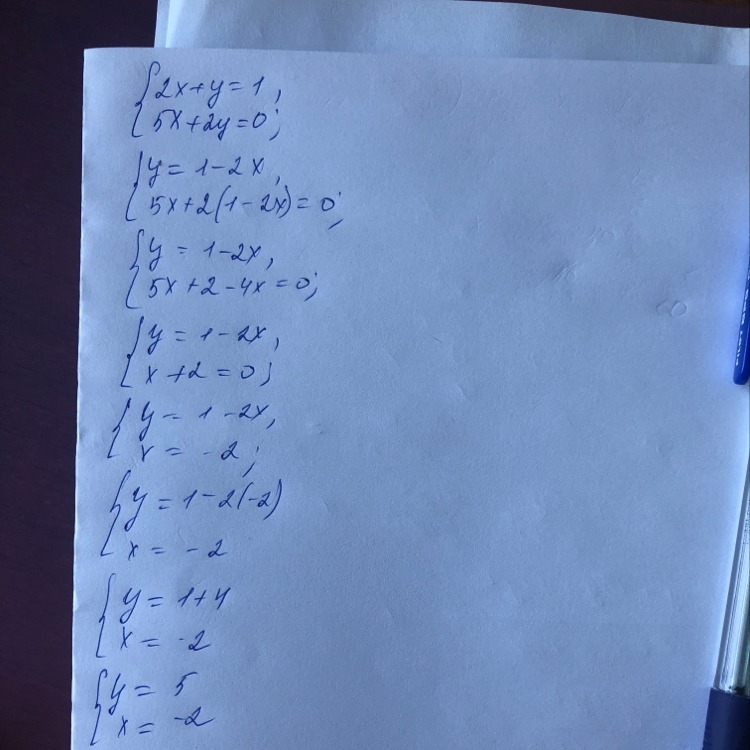 2x+y=1,
5x+2y=0;
y=1-2x,
5x+2(1-2x)=0;
y=1-2x,
5x+2-4x=0;
y=1-2x,
x+2=0;
y=1-2x,
x=-2;
y=1-2(-2)
x=-2
y=1+4
x=-2
y=5
x=-2